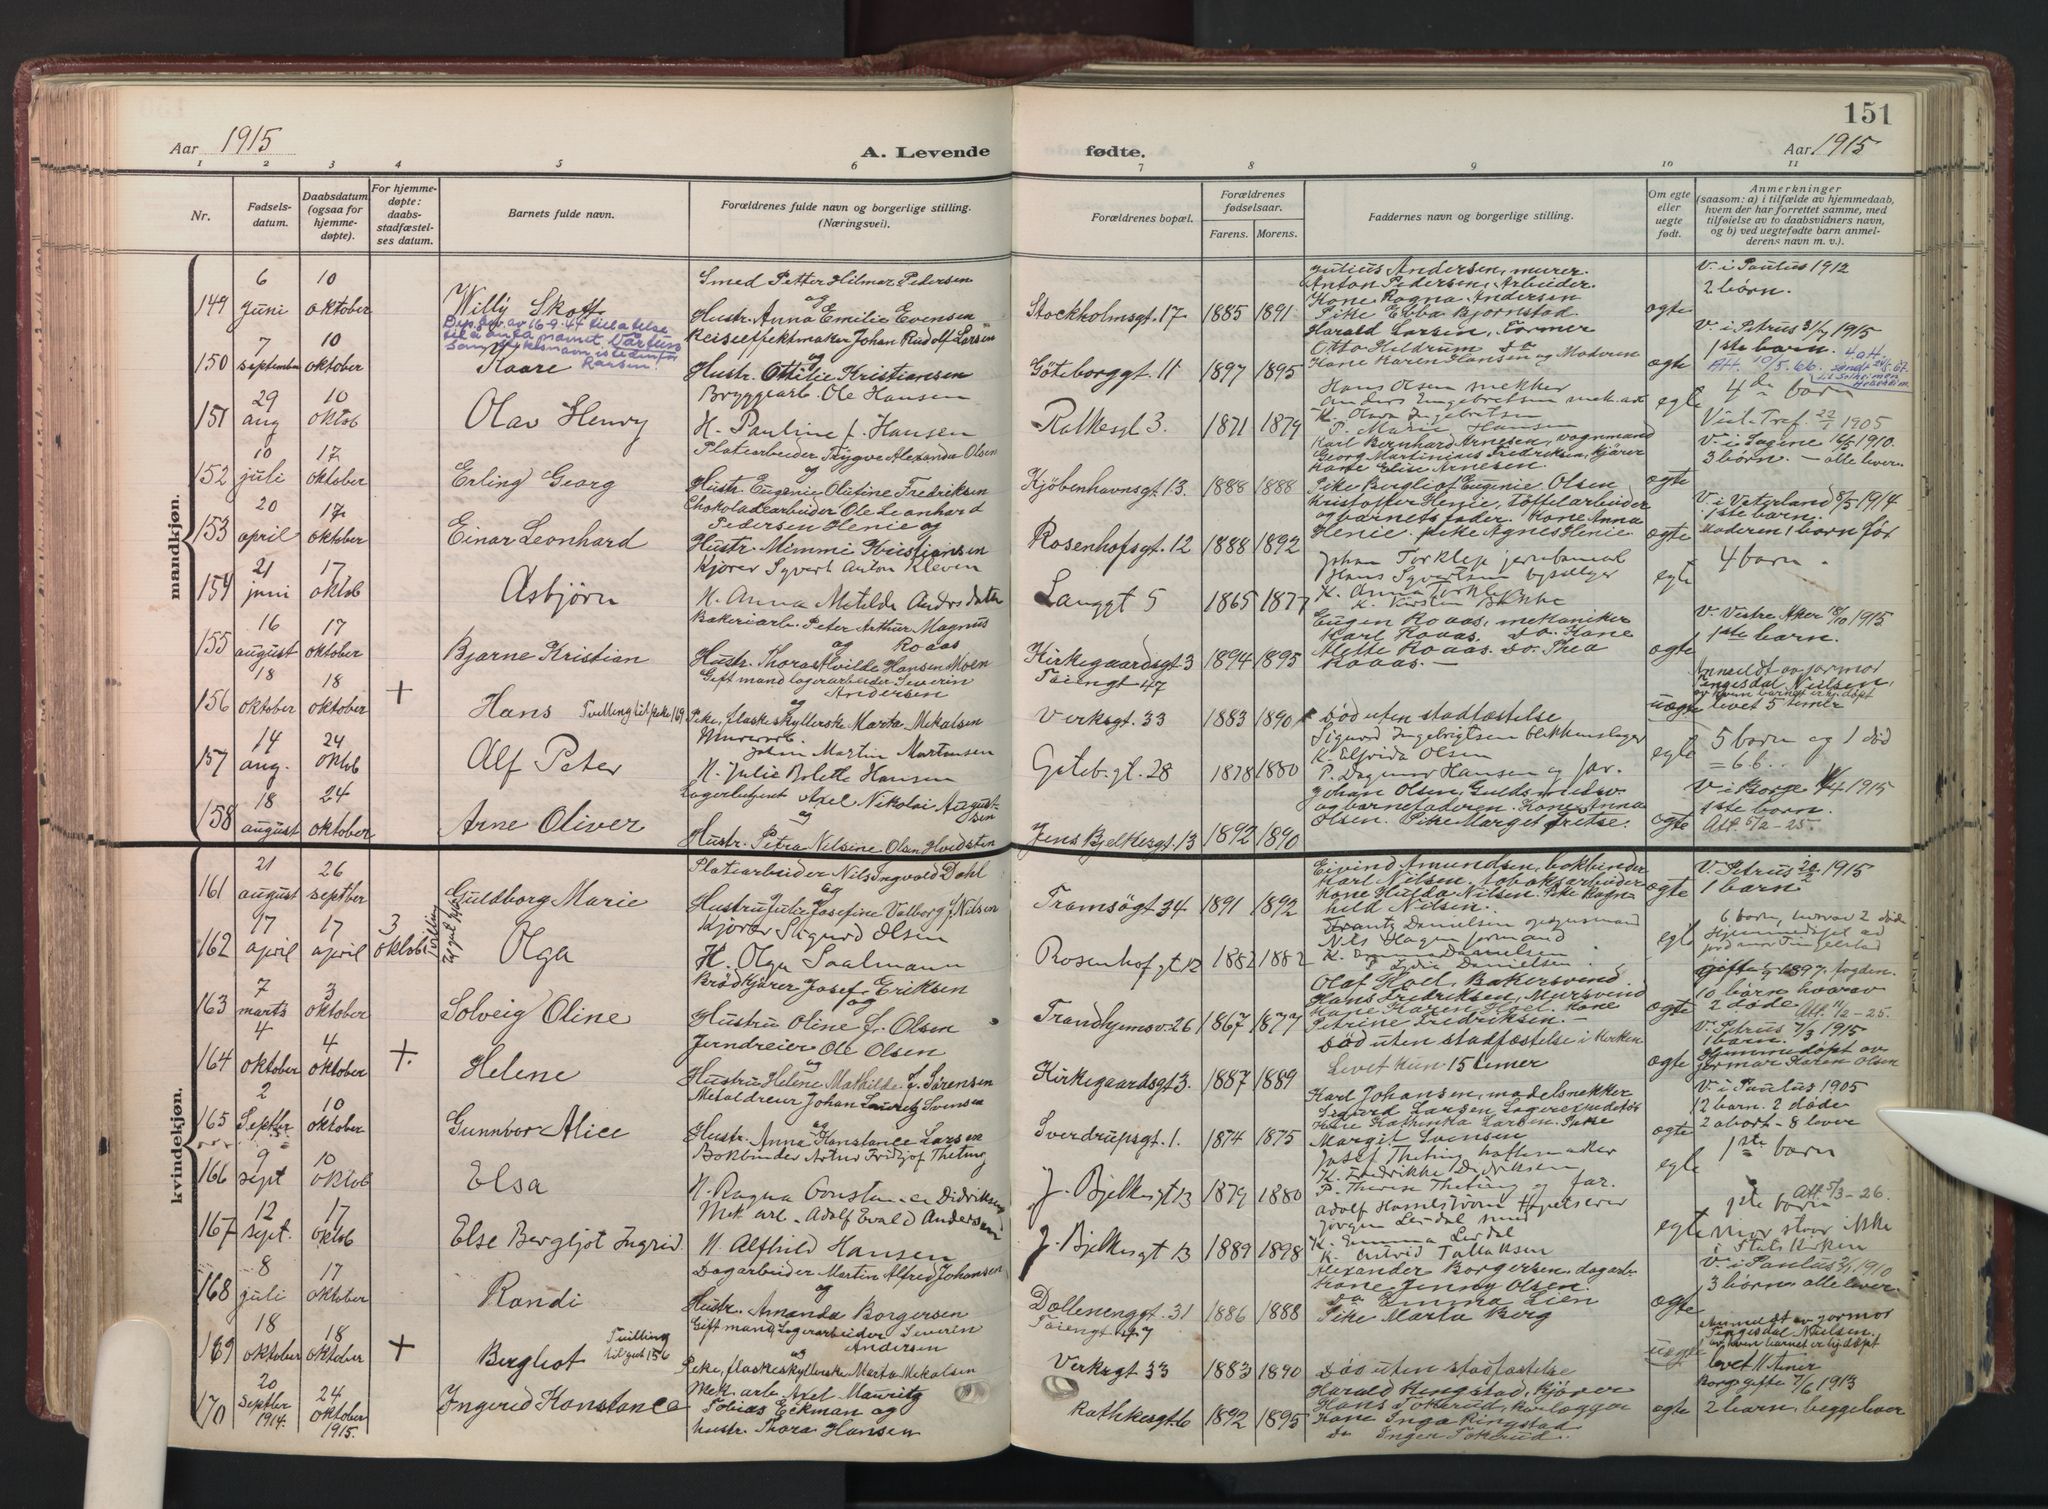 151
Aar 1915
A. Levende fødte.
Aar 1915
1 2 3 4 5 6 7 8 9 10 11
Nr.
Fødsels-
datum.
Daabsdatum
(ogsaa for
hjemme-
døpte).
For hjemme-
døpte:
daabs-
stadfæstel-
ses datum.
Barnets fulde navn.
Forældrenes fulde navn og borgerlige stilling.
(Næringsvei).
Forældrenes bopæl.
Forældrenes
fødselsaar.
Farens. Morens.
Faddernes navn og borgerlige stilling.
Om egte
eller
uegte
født.
Anmerkninger
(saasom: a) i tilfælde av hjemmedaab,
hvem der har forrettet samme, med
tilføielse av to daabsvidners navn,
og b) ved uegtefødte barn anmel-
derens navn m. v.).
mandkjøn.
149 6 juni 10 oktober Willy Skott
Smed Petter Hilmar Pedersen
og
Hustr. Anna Emilie Evensen
Stockholmsgt. 17 1885 1891
Julius Andersen, murer.
Anton Pedersen, Arbeider.
Kone Ragna Andersen
Pike Ebba Bjørnstad
ægte
V. i Paulus 1912
2 børn.
150 7 september 10 oktober Kaare
Reiseeffektmaker Johan Rudolf Larsen
og
Hustr. Ottilie Kristiansen
Göteborggt. 11 1897 1895
Harald Larsen, Former
Otto Heldrum do
Kone Karen Hansen og Moderen
ægte
V. i Petrus 3/7 1915
1ste barn.
151 29 aug 10 oktob Olav Henry
Bryggearb. Ole Hansen
H. Pauline f. Hansen
Ratkesgt 3. 1871 1879
Hans Olsen mekker
Anders Engebretsen mek. arb
K. Olava Ingebretsen
P. Marie Hansen
egte
4de barn
1905
152 10 juli 17 oktober Erling Georg
Platearbeider Trygve Alexander Olsen
og
Hustr. Eugenie Olutine Fredriksen
Kjøbenhavnsgt. 13. 1888 1888
Karl Bernhard Arnesen, vognmand
Georg Martinius Fredriksen, kjører
Kone Elise Arnesen.
Pike Bergliot Eugenie Olsen
ægte
V. i Sagene 16/5 1910.
3 børn. — alle lever
153 20 april 17 oktober Einar Leonhard
Chokoladearbeider Ole Leonhard
Pedersen Henie og
Hustr. Mimmi Kristiansen
Rosenhofsgt. 12 1888 1892
Kristoffer Henie, Tøffelarbeider
og barnets fader. Kone Anna
Henie. Pike Agnes Henie.
ægte
V. i Vaterland 8/5 1914
1ste barn.
Moderen 1 barn før
154 21 juni 17 oktob Asbjörn
Kjører Syvert Anton Kleven
H. Anna Matilde Andrsdater
Langgt 5 1865 1877
egte
4 barn.
155 16 august 17 oktober Bjarne Kristian
Bakeriarb. Peter Arthur Magnus
og Roaas
Hustr. Thora Alvilde Hansen Moen
Kirkegaardsgt 3 1894 1895
Eugen Roaas, mekaniker
Karl Roaas. Do. Kone
Mette Roaas. Do. Thea
Roaas. —
ægte
V. Vestre Aker 18/10 1915
1ste barn.
156 18 oktober 18 oktober + Hans Tvilling til pike 169
Gift mand lagerarbeider Severin
Andersen
og
Pike, flaskeskyllerske Marta Mikalsen
Tøiengt 47
Verksgt. 33 1883 1890
Død uten stadfæstelse
uægte
Anmeldt av jormor
Tingesdal Nielsen,
av hvem barnet er hj. døpt
levet 5 timer
157 14 aug. 24 oktob Alf Peter
Murerarb.
Johan Martin Martinsen
H. Julie Bolette Hansen
Göteb.gt. 28 1878 1880
Sigurd Ingebrigtsen blikkenslager
K. Elfrida Olsen
P. Dagmar Hansen og far.
egte
5 barn og 1 død
= 6 6..
158 18 august 24 oktober Arne Oliver
Lagerbetjent Axel Nikolai August-
og sen
Hustr. Petra Nilsine Olsen Hvidsten
Jens Bjelkesgt. 13 1892 1890
Johan Olsen, Guldsmedsv.
og barnefaderen. Kone Anna
Olsen. Pike Margit Fretse.
ægte
V. i Borge 1/4 1915
1ste barn.
Att. 5/2-25.
kvindekjøn.
161 21 august 26 septber Guldborg Marie
Platearbeider Nils Ingvald Dahl
og
Hustru Julie Josefine Valborg f. Nilsen
Tromsøgt. 34 1891 1892
Eivind Amundsen, bokbinder
Karl Nilsen, tobaksarbeider
Kone Hulda Nilsen. Pike Ragn-
hild Nilsen.
ægte
V. Petrus 20/2 1915
1 barn
162 17 april 17 april 3 oktober Olga
Kjører Sigurd Olsen
H. Olga Saalmann
Rosenhofgt 12 1882 1882
Frantz Danielsen
Nils Hagen formand
egte
6 barn, hvorav 2 døde
Hjemmedøpt av
jordmor Tingelstad
163 7 marts 3 oktober Solveig Oline
Brødkjører Josef Eriksen
og
Hustru Oline f. Olsen
Trondhjemsv. 26 1867 1877
Olaf Hoel, Bakersvend.
Hans Fredriksen, Mursvend
Kone Karen Hoel. Kone
Petrine Fredriksen. —
ægte
10 børn hvorav
2 døde Att. 11/2-25.
164 4 oktober 4 oktober + Helene
Jerndreier Ole Olsen
og
Hustru Helene Mathilde f. Sørensen
Kirkegaardsgt 3. 1887 1889
Død uten stadfæstelse i Kirken
Levet kun 15 timer
ægte
V. Petrus 7/3 1915
1 barn.
Hjemmedøpt av
jormor Karen Olsen
165 2 Septber 10 oktober Gunnbor Alice
Metaldreier Johan Lauritz Svensen
og
Hustr. Anna Konstance Larsen
Sverdrupsgt. 1. 1874 1875
Karl Johansen, modelsnekker
Sigurd Larsen Lagerexpeditør
Kone Kathinka Larsen. Pike
Margit Svensen
ægte
V. i Paulus 1905
12 barn. 2 døde
2 abort - 8 lever
166 9 sept 10 oktob Elsa
Bokbinder Artur Fridtjof Theting
H. Ragna Constance Didriksen
J. Bjelkesgt 13 1879 1880
Josef Theting hattemaker
K. Fredrikke Didriksen
P. Therese Theting og far.
egte
1ste barn
167 12 sept. 17 oktob Else Bergljot Ingrid
Mek. arb. Adolf Evald Andersen
H. Alfhild Hansen
J. Bjelkesgt 13 1889 1898
Adolf Hammelstrøm tapetserer
Jørgen Lerdal smed
K. Emma Lerdal
K. Astrid Tollaksen
egte
Att. 5/3-26.
1ste barn
mor staar ikke
i Stats Kirken
168 8 juli 17 oktober Randi
Dagarbeider Martin Alfred Johansen
og
Hustr. Amanda Borgersen
Dælenenggt. 31 1886 1888
Alexander Borgersen, dagarb.
Kone Jenny Olsen.
Do Emma Lien
Pike Marta Berg
ægte
V. i Paulus 2/1 1910
3 børn. alle lever.
169 18 oktober 18 oktober + Bergliot Tvilling til gut 156
Gift mand Lagerarbeider Severin
Andersen
og
Pike, flaskeskyllerske Marta Mikalsen
Tøiengt 47
Verksgt 33 1883 1890
Død uten stadfæstelse
uægte
Anmeldt av jormor
Tingesdal Nielsen.
av hvem barnet er hj. døpt
levet 11 timer
170 20 septber 1914. 24 oktober 1915. Ingerid Konstance
Mek. arb. Axel Mauritz
Tobias Eckman og
hustr. Thora Hansen
Rathkesgt. 6 1892 1895
Harald Ringstad, Kjører
Kone Inga Ringstad
Do Inger Tokerud..
ægte
Borg. gifte 7/6 1913
2 barn, begge lever